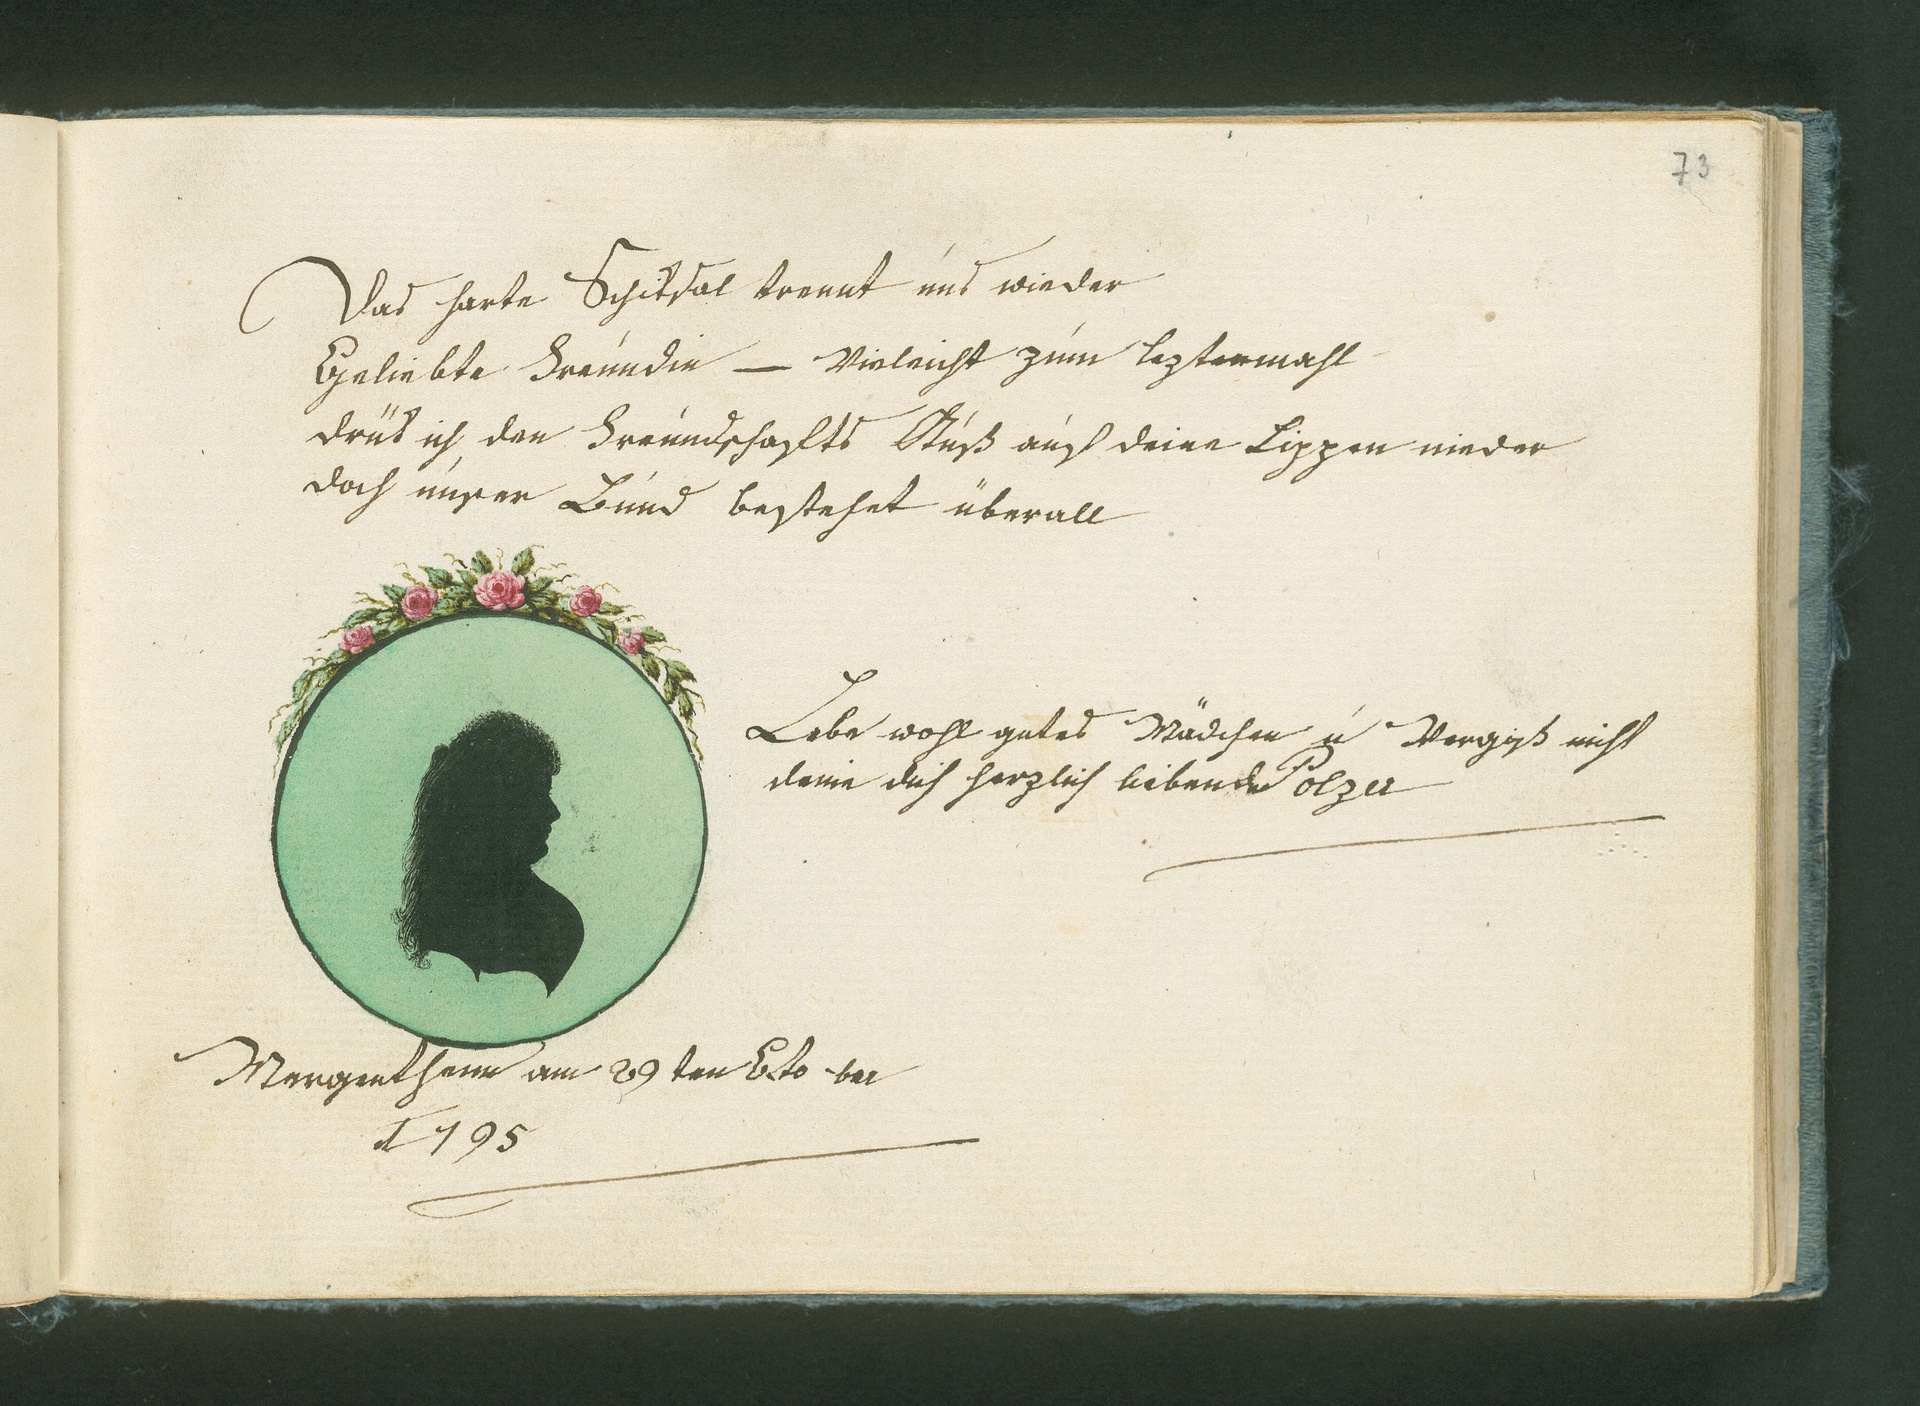 73
Das harte Schiksal trennt uns wieder
Geliebte Freundin — Vieleicht zum leztenmahl
drük ich den Freundschafts Kuß auf deine Lippen nieder
doch unser Bund bestehet überall
Lebe wohl gutes Mädchen u Vergiß nicht
deine dich herzlich libende Polzer
Mergentheim am 29 ten Octo ber
1795